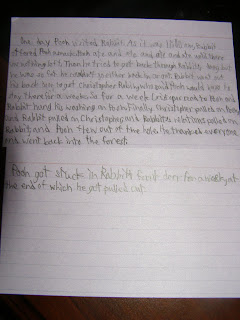 One day Pooh visited Rabbit. As it was 11:00 am, Rabbit
offered Pooh a snack. Pooh ate and ate and ate and ate until there
was nothing left. Then he tried to get back through Rabbit's door but
he was so fat he couldn't go either back to or get. Rabbit went out
his back door to get Christopher Robin, who said Pooh would have to
stay there for a week. So for a week Christopher read to Pooh and
Rabbit hung his washing on him. Finally, Christopher pulled on Pooh
and Rabbit pulled on Christopher, and Rabbit's relations pulled on
Rabbit, and Pooh flew out of the hole. He thanked everyone
and went back into the forest.
Pooh got stuck in Rabbit's front door for a week, at
the end of which he got pulled out.